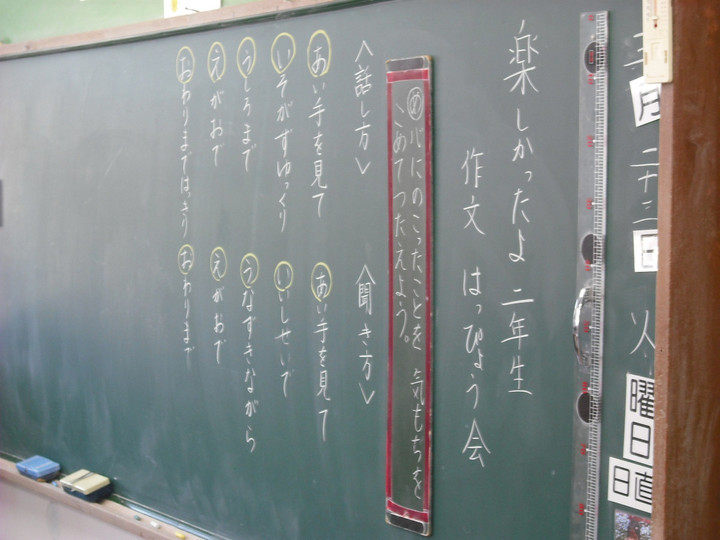 三月二十二日 火曜日
日直
楽しかったよ 二年生
作文 はっぴょう会
め 心にのこったことを 気もちを
こめてつたえよう。
<話し方>
あい手を見て
いそがずゆっくり
うしろまで
えがおで
おわりまではっきり
<聞き方>
あい手を見て
いいしせいで
うなずきながら
えがおで
おわりまで